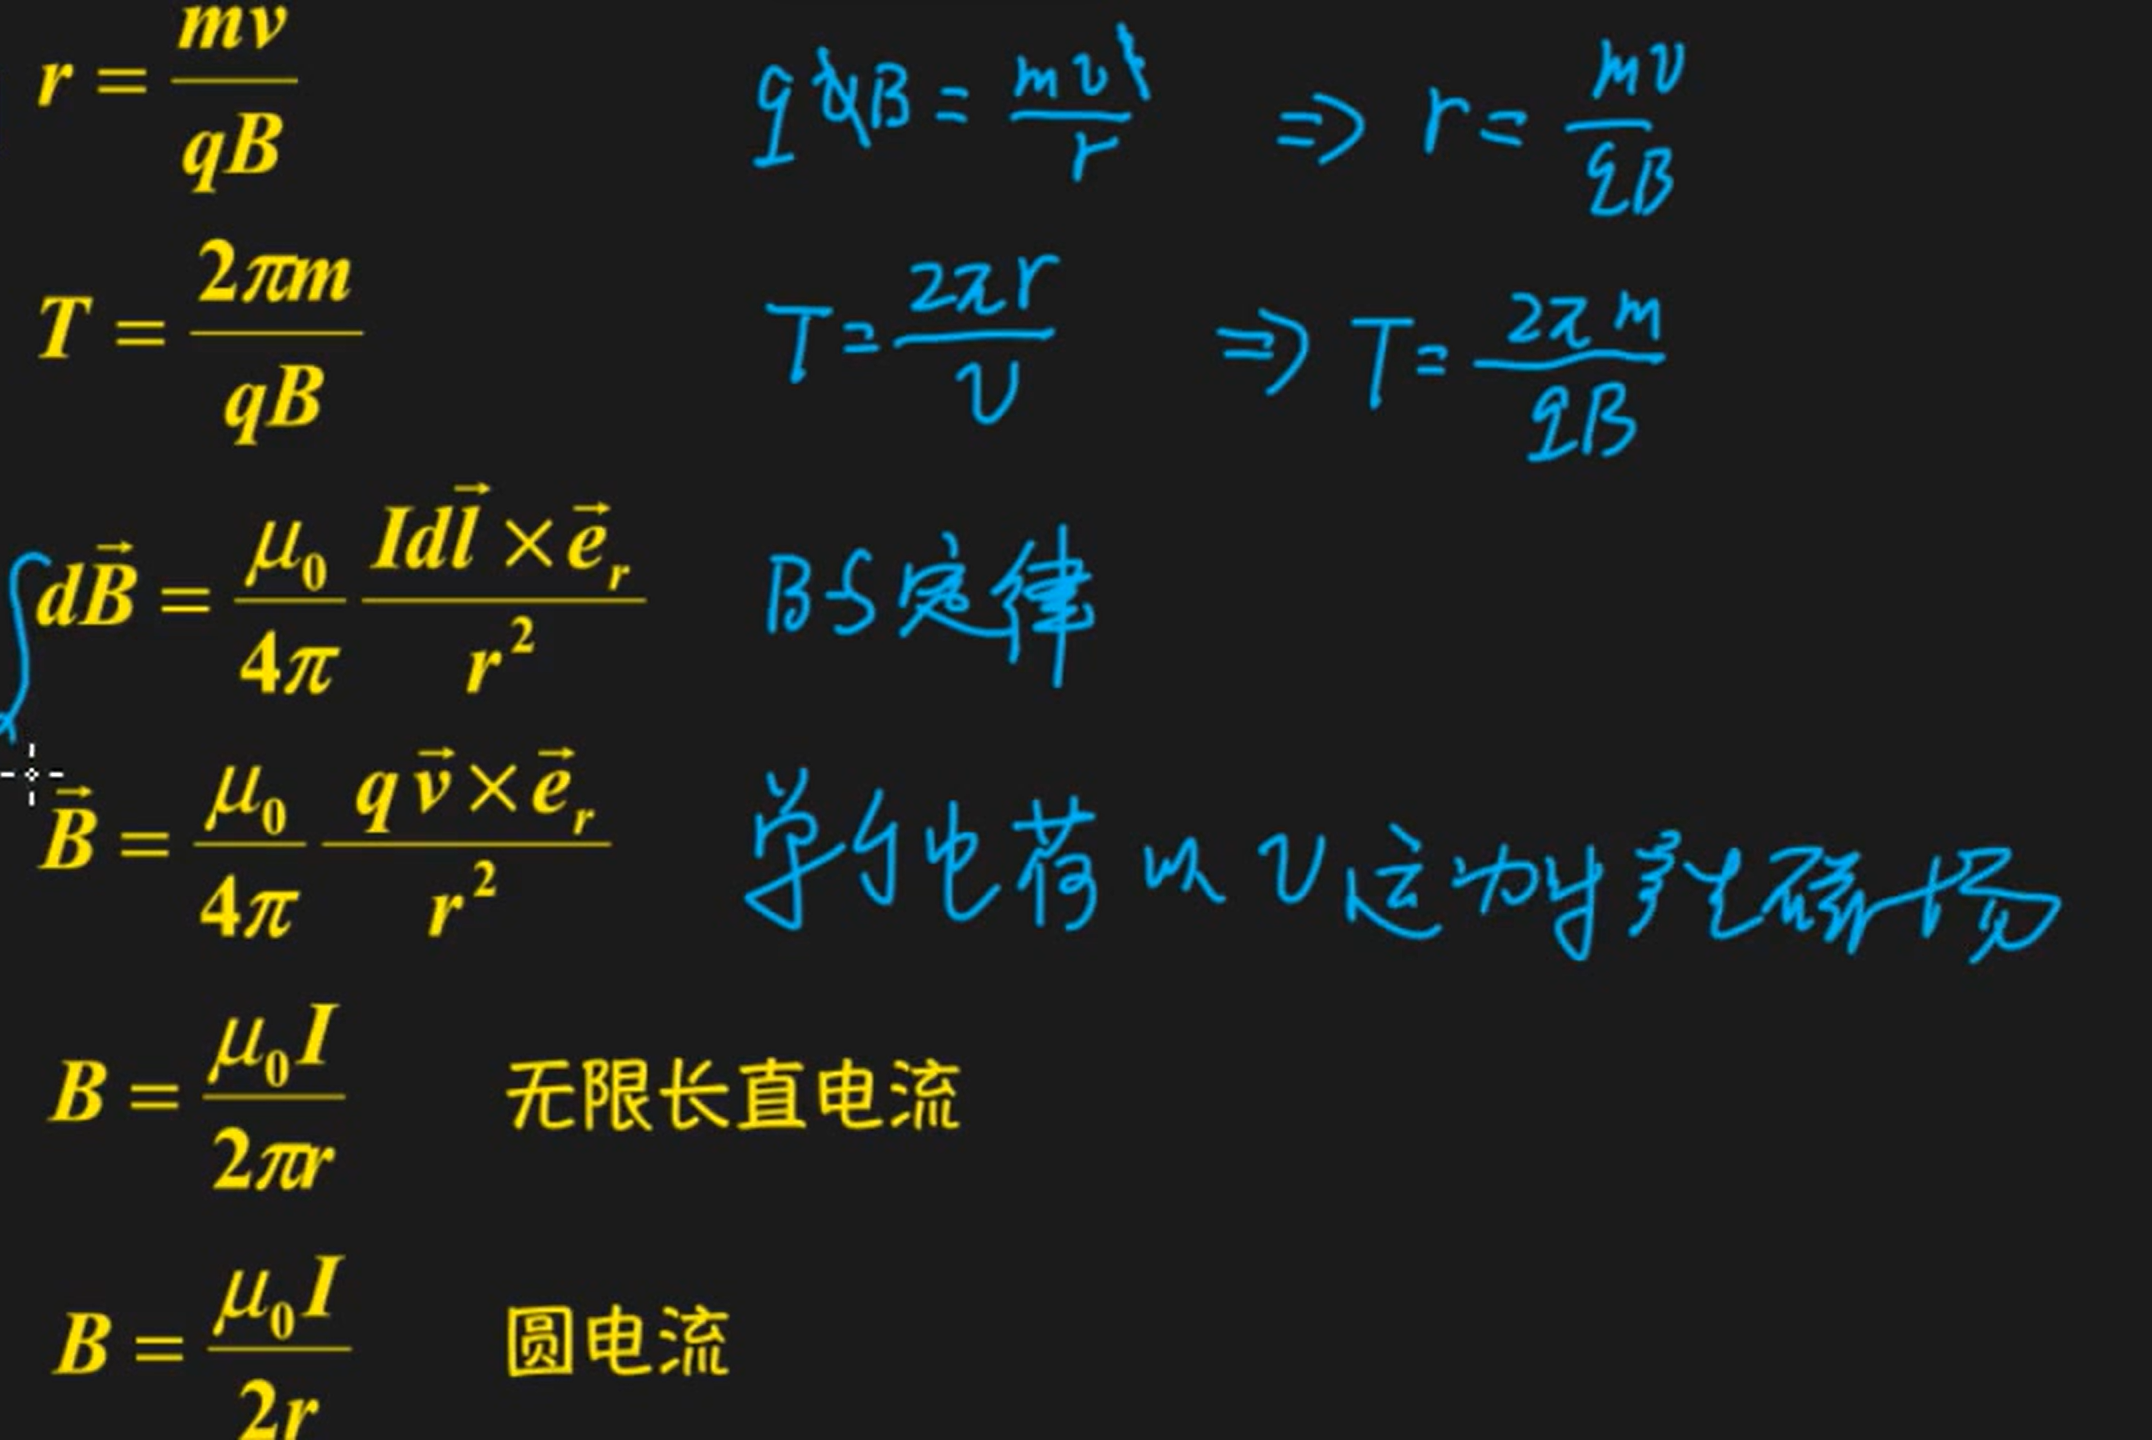 r = mv/qB    q v B = mv²/r ⇒ r = mv/qB
T = 2πm/qB    T = 2πr/v ⇒ T = 2πm/qB
∫ dB⃗ = μ₀/4π Idl⃗ × e⃗ᵣ/r²    BS定律
B⃗ = μ₀/4π qv⃗ × e⃗ᵣ/r²    单个电荷以v运动时产生磁场
B = μ₀I/2πr    无限长直电流
B = μ₀I/2r    圆电流